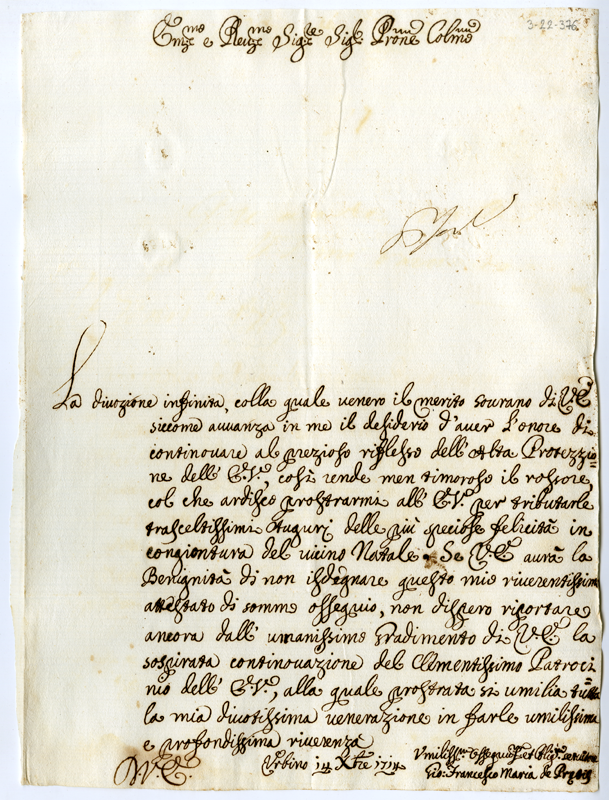 3-22-376
Em.mo e Reu.mo Sig.re Sig.re Prone Colmo
La diuozione infinita, colla quale uenero il merito sourano di V.E.
siccome auuanza in me il desiderio d'auer l'onore di
continouare al prezioso riflesso dell'Alta Protezzio=
ne dell'E.V., così rende men timoroso il rossore,
col che ardisco prostrarmi all'E.V. per tributarle
trasceltissimi Auguri delle più speciose felicità in
congiontura del uicino Natale. Se V.E. aurà la
Benignità di non isdegnare questo mio riuerentissimo
attestato di sommo ossequio, non dispero riportare
ancora dall'umanissimo Gradimento di V.E. la
sospirata continouazione del Clementissimo Patroci=
nio dell'E.V., alla quale prostrata si umilia tutta
la mia diuotissima uenerazione in farle umilissima
e profondissima riuerenza
V.E. Urbino 14 Xbre 1714
Umiliss.mo
Gio: Francesco Maria de